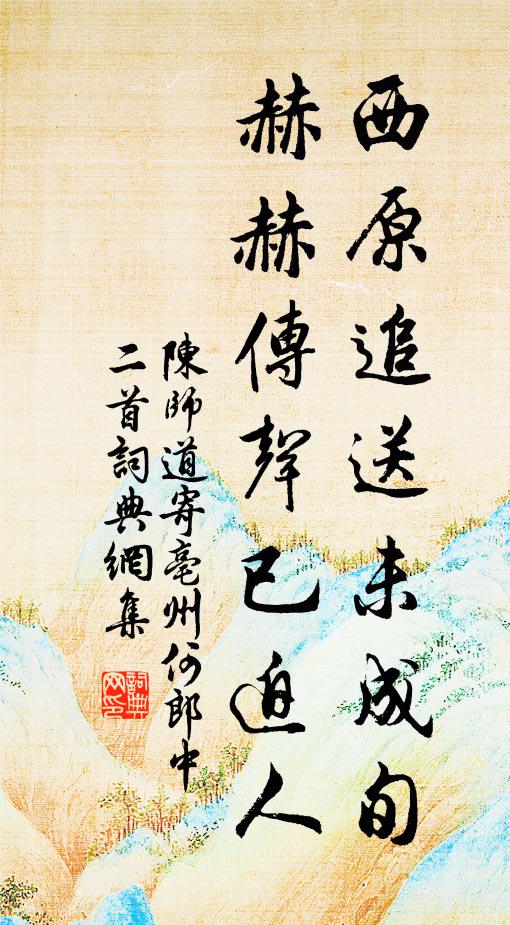 西原追送未成旬
赫赫傳聲已迫人
陳師道寄亳州何郎中
二首詞典網集
詞典網印